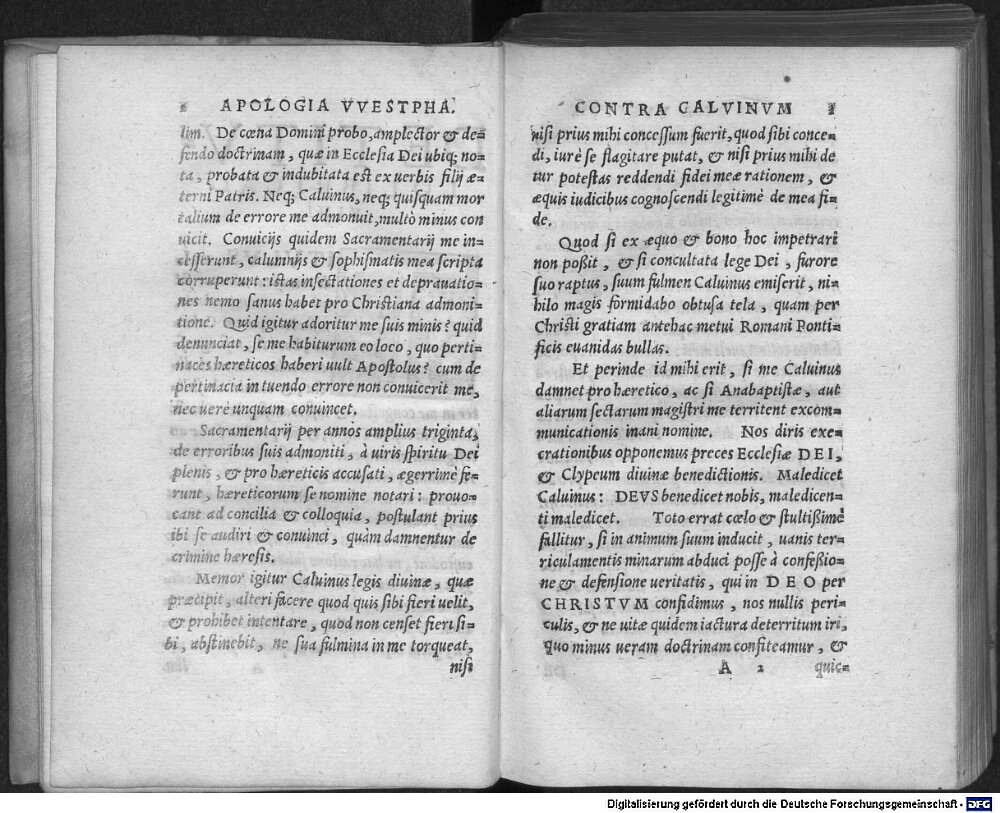 APOLOGIA VVESTPHA.
lim. De cœna Domini probo, amplector & de=
fendo doctrinam, quæ in Ecclesia Dei ubiq; no=
ta, probata & indubitata est ex uerbis filij æ=
terni Patris. Neq; Caluinus, neq; quisquam mor
talium de errore me admonuit, multò minus con
uicit. Conuicijs quidem Sacramentarij me in=
cesserunt, calumnijs & sophismatis mea scripta
corruperunt: istas insectationes et deprauatio=
nes nemo sanus habet pro Christiana admoni=
tione. Quid igitur adoritur me suis minis? quid
denunciat, se me habiturum eo loco, quo perti=
naces hæreticos haberi uult Apostolus? cum de
pertinacia in tuendo errore non conuicerit me,
nec uerè unquam conuincet.
Sacramentarij per annos amplius triginta,
de erroribus suis admoniti, à uiris spiritu Dei
plenis, & pro hæreticis accusati, ægerrimè fe=
runt, hæreticorum se nomine notari: prouo=
cant ad concilia & colloquia, postulant prius
ibi se audiri & conuinci, quàm damnentur de
crimine hæresis.
Memor igitur Caluinus legis diuinæ, quæ
præcipit, alteri facere quod quis sibi fieri uelit,
& prohibet intentare, quod non censet fieri si=
bi, abstinebit, ne sua fulmina in me torqueat,
nisi
CONTRA CALVINVM
nisi prius mihi concessum fuerit, quod sibi conce=
di, iurè se flagitare putat, & nisi prius mihi de
tur potestas reddendi fidei meæ rationem, &
æquis iudicibus cognoscendi legitimè de mea fi=
de.
Quod si ex æquo & bono hoc impetrari
non poßit, & si concultata lege Dei, furore
suo raptus, suum fulmen Caluinus emiserit, ni=
hilo magis formidabo obtusa tela, quam per
Christi gratiam antehac metui Romani Ponti=
ficis euanidas bullas.
Et perinde id mihi erit, si me Caluinus
damnet pro hæretico, ac si Anabaptistæ, aut
aliarum sectarum magistri me territent excom=
municationis inani nomine. Nos diris exe=
crationibus opponemus preces Ecclesiæ DEI,
& Clypeum diuinæ benedictionis. Maledicet
Caluinus: DEVS benedicet nobis, maledicen=
ti maledicet. Toto errat cœlo & stultißimè
fallitur, si in animum suum inducit, uanis ter=
riculamentis minarum abduci posse à confeßio=
ne & defensione ueritatis, qui in DEO per
CHRISTVM confidimus, nos nullis peri=
culis, & ne uitæ quidem iactura deterritum iri,
quo minus ueram doctrinam confiteamur, &
A 2 quic=
Digitalisierung gefördert durch die Deutsche Forschungsgemeinschaft - DFG